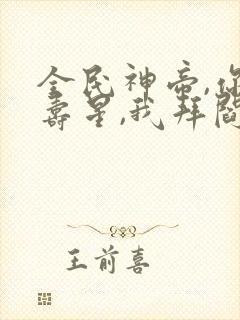 全民神帝,你
寿星,我拜阎
王前喜